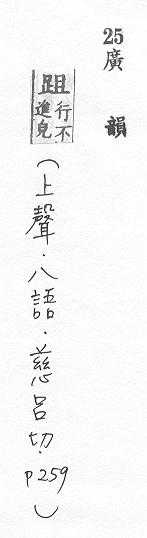 25廣韻
跙行不進皃
（上聲．八語．慈呂切．p259）